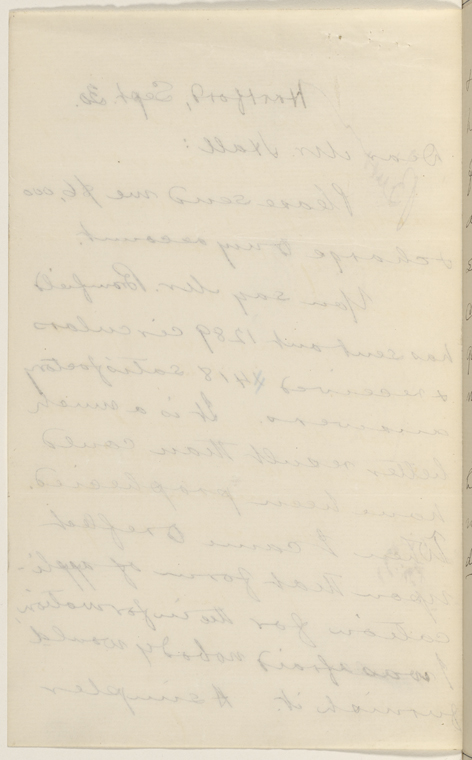 Hartford, Sept. 20.
Dear Mr. Hall:
Please send me $6,000
& charge to my account.
You say Mr. Bonfils
has sent out 1289 circulars
& received 418 satisfactory
answers. It is a much
better result than could
have been prophecied.
When I came to reflect
upon that form of appli-
cation for the information,
I was afraid nobody would
furnish it. A simpler